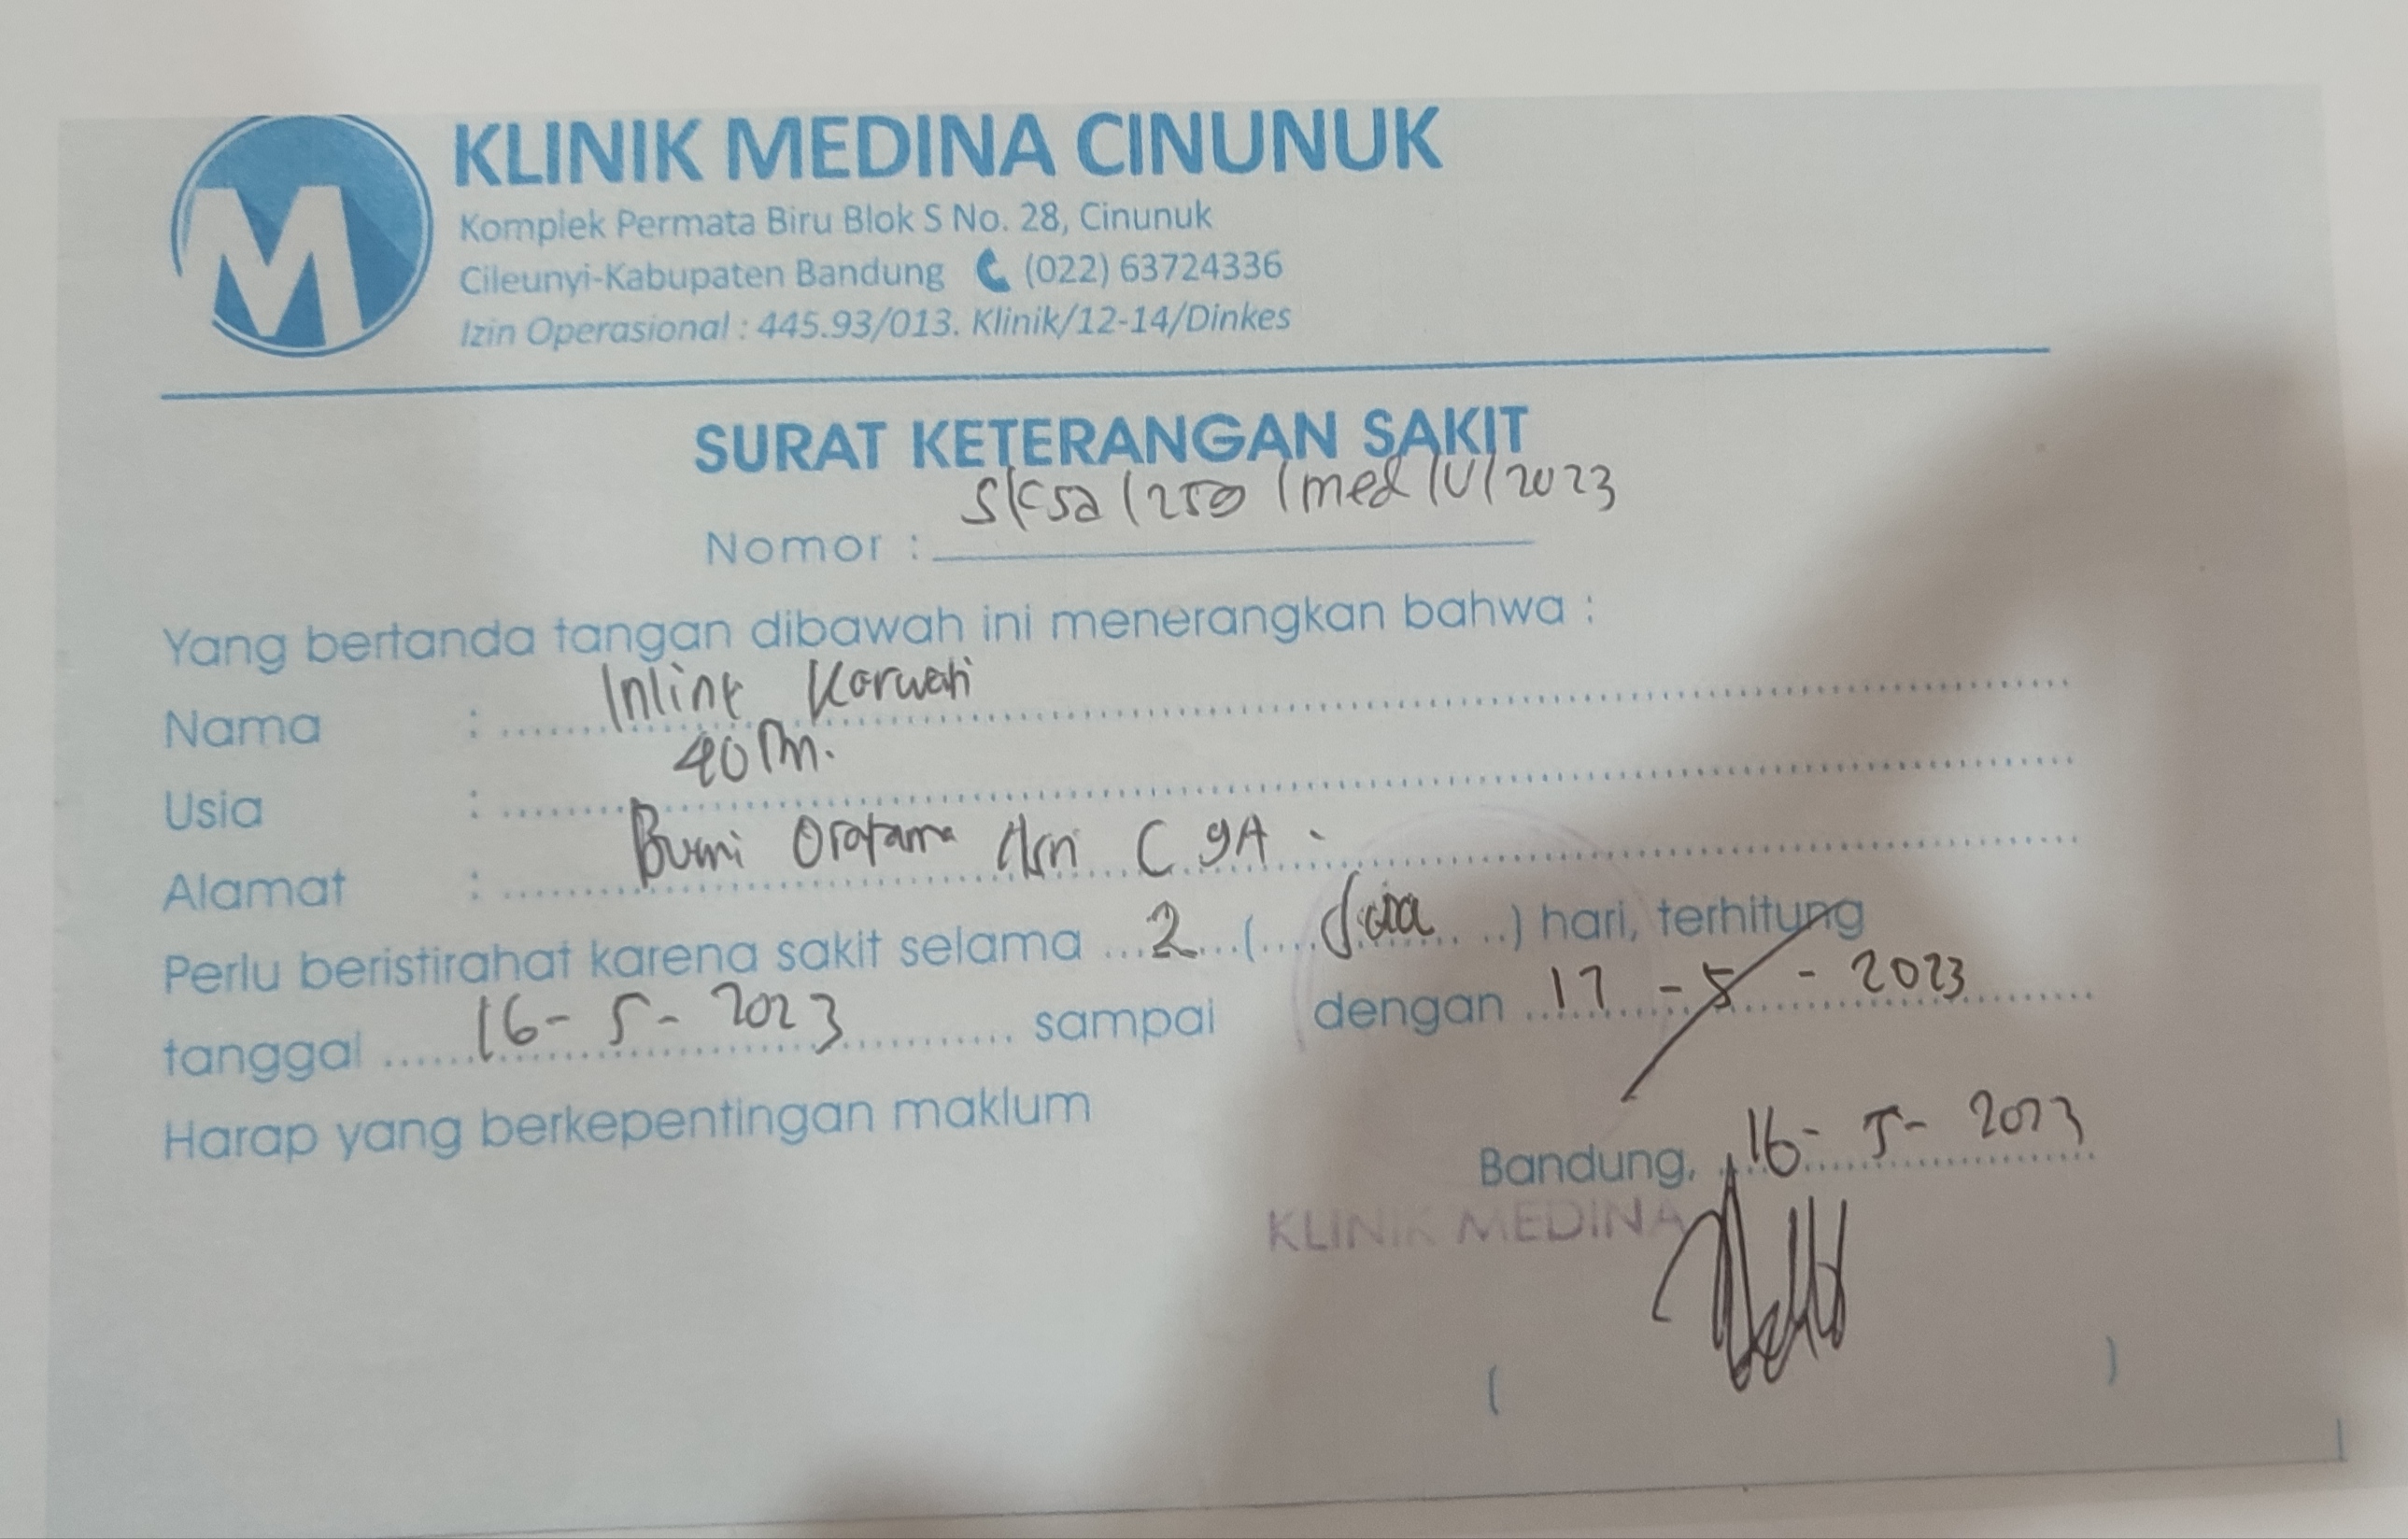 KLINIK MEDINA CINUNUK
Komplek Permata Biru Blok S No. 28, Cinunuk
Cileunyi-Kabupaten Bandung (022) 63724336
Izin Operasional : 445.93/013. Klinik/12-14/Dinkes
SURAT KETERANGAN SAKIT
Nomor : /med/V/2023
Yang bertanda tangan dibawah ini menerangkan bahwa :
Nama : Karwati
Usia : 40 Th.
Alamat : Bumi C 9A
Perlu beristirahat karena sakit selama 2 ( dua ) hari, terhitung
tanggal 16 - 5 - 2023 sampai dengan 17 - 5 - 2023
Harap yang berkepentingan maklum
Bandung, 16 - 5 - 2023
KLINIK MEDINA
( )